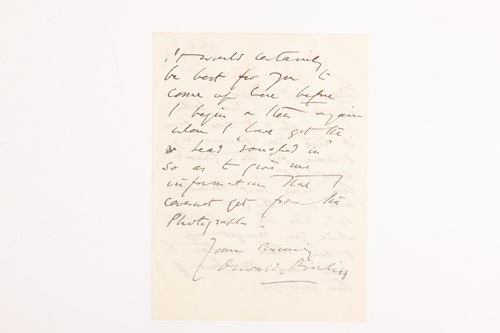 it would certainly
be best for you to
come up here before
I begin & then again
when I have get the
head "roughed in"
so as to give me
information that I
cannot get from the
Photographs.
Yours sincerely
Oswald Birley